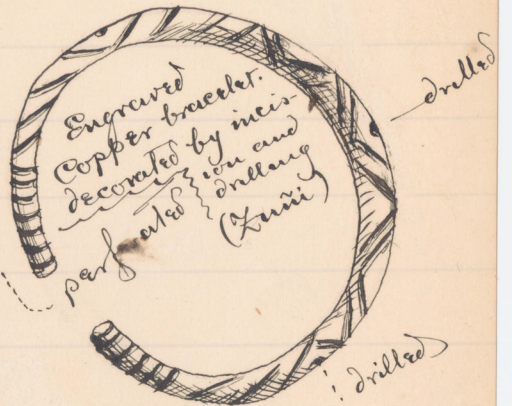 Engraved
Copper bracelet.
decorated by incis-
ion and
drilling
(Zuñi)
perforated
drilled
! drilled